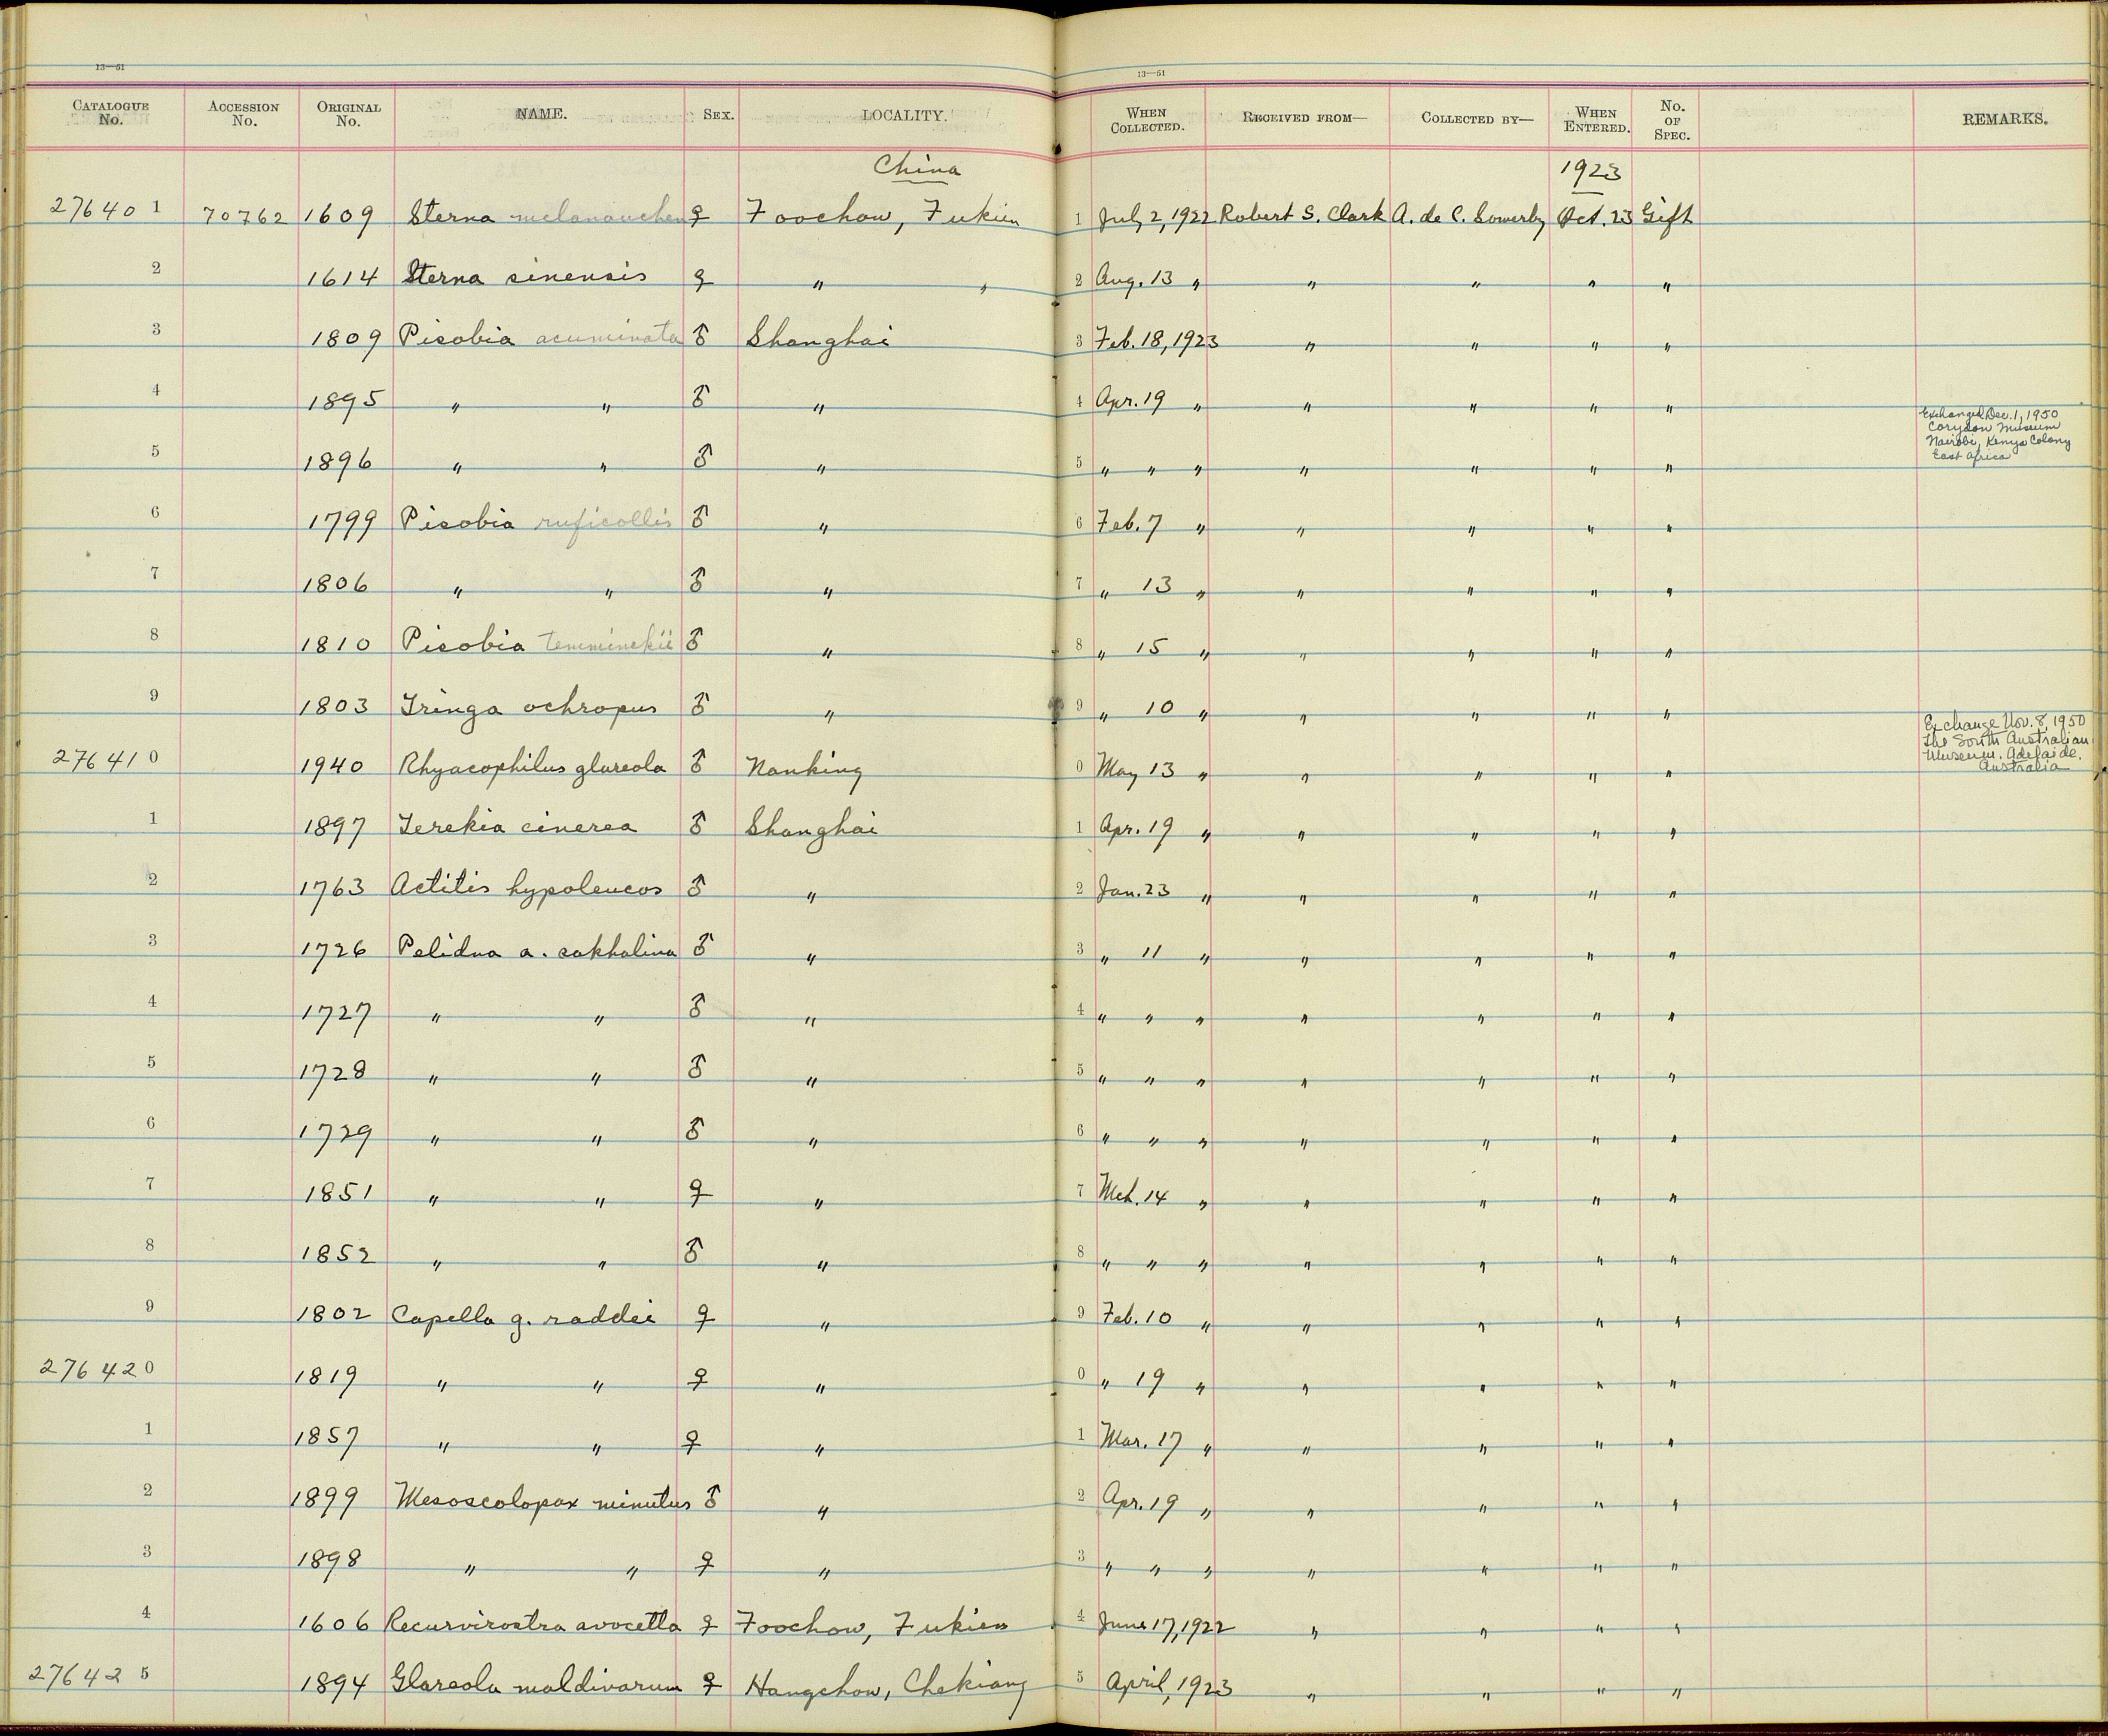 13—51
13—51
CATALOGUE No. ACCESSION No. ORIGINAL No. NAME. SEX. LOCALITY. WHEN COLLECTED. RECEIVED FROM— COLLECTED BY— WHEN ENTERED. No. OF SPEC. REMARKS.
China 1923
27640 1 70762 1609 Sterna melanauchen ♀ Foochow, Fukien 1 July 2, 1922 Robert S. Clark A. de C. Sowerby Oct. 23 Gift
2 1614 Sterna sinensis ♀ " " 2 Aug. 13 " " " " "
3 1809 Pisobia acuminata ♂ Shanghai 3 Feb. 18, 1923 " " " "
4 1895 " " ♂ " 4 Apr. 19 " " " " "
5 1896 " " ♂ " 5 " " " " " " " Exchanged Dec. 1, 1950
Coryndon Museum
Nairobi, Kenya Colony
East Africa
6 1799 Pisobia ruficollis ♂ " 6 Feb. 7 " " " " "
7 1806 " " ♂ " 7 " 13 " " " " "
8 1810 Pisobia temminckii ♂ " 8 " 15 " " " " "
9 1803 Tringa ochropus ♂ " 9 " 10 " " " " "
27641 0 1940 Rhyacophilus glareola ♂ Nanking 0 May 13 " " " " " Exchange Nov. 8, 1950
The South Australian
Museum. Adelaide.
Australia
1 1897 Terekia cinerea ♂ Shanghai 1 Apr. 19 " " " " "
2 1763 Actitis hypoleucos ♂ " 2 Jan. 23 " " " " "
3 1726 Pelidna a. sakhalina ♂ " 3 " 11 " " " " "
4 1727 " " ♂ " 4 " " " " " " "
5 1728 " " ♂ " 5 " " " " " " "
6 1729 " " ♂ " 6 " " " " " " "
7 1851 " " ♀ " 7 Mch. 14 " " " " "
8 1852 " " ♂ " 8 " " " " " " "
9 1802 Capella g. raddei ♀ " 9 Feb. 10 " " " " "
27642 0 1819 " " ♀ " 0 " 19 " " " " "
1 1857 " " ♀ " 1 Mar. 17 " " " " "
2 1899 Mesoscolopax minutus ♂ " 2 Apr. 19 " " " " "
3 1898 " " ♀ " 3 " " " " " " "
4 1606 Recurvirostra avocetta ♀ Foochow, Fukien 4 June 17, 1922 " " " "
27642 5 1894 Glareola maldivarum ♀ Hangchow, Chekiang 5 April, 1923 " " " "